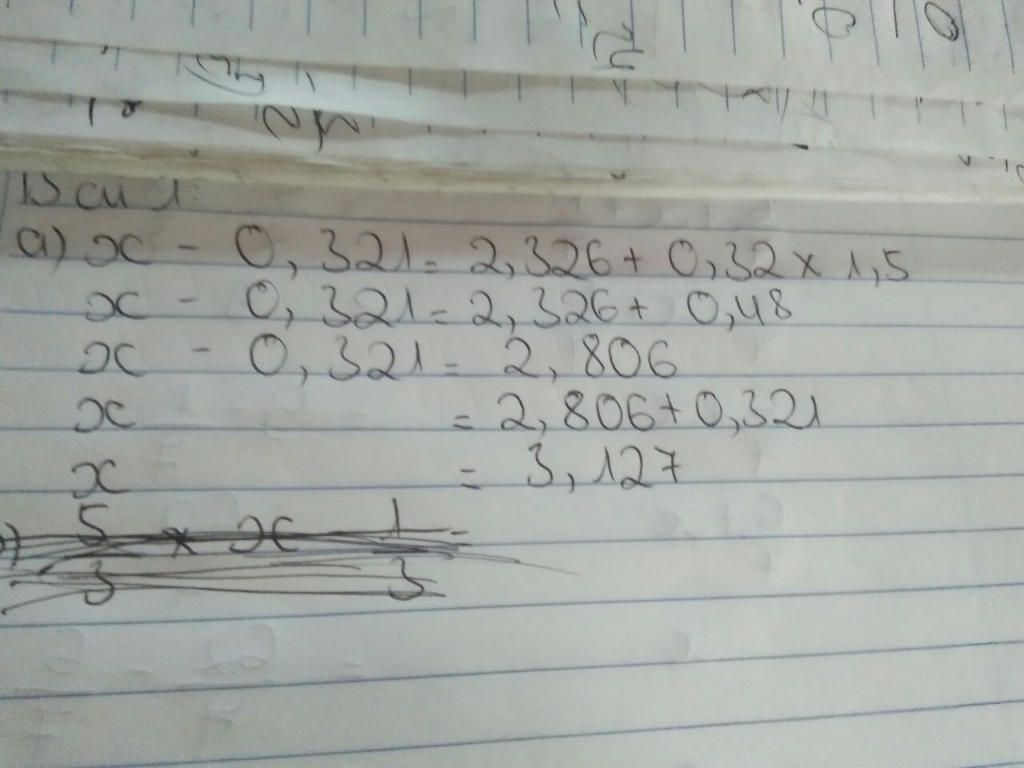 Bài 1:
a) x - 0,321 = 2,326 + 0,32 x 1,5
x - 0,321 = 2,326 + 0,48
x - 0,321 = 2,806
x = 2,806 + 0,321
x = 3,127